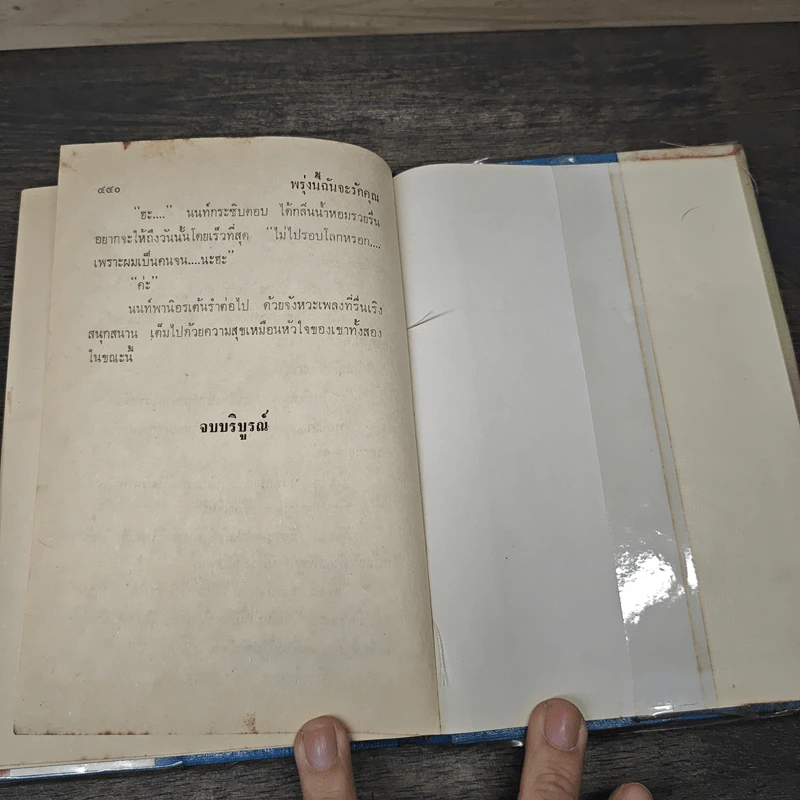 ๔๔๐
พรุ่งนี้ฉันจะรักคุณ
"ฮะ...." นนท์กระซิบตอบ ได้กลิ่นน้ำหอมรวยรื่น
อยากจะให้ถึงวันนั้นโดยเร็วที่สุด "ไม่ไปรอบโลกหรอก....
เพราะผมเป็นคนจน....นะฮะ"
"ค่ะ"
นนท์พานิอรเต้นรำต่อไป ด้วยจังหวะเพลงที่รื่นเริง
สนุกสนาน เต็มไปด้วยความสุขเหมือนหัวใจของเขาทั้งสอง
ในขณะนี้
จบบริบูรณ์